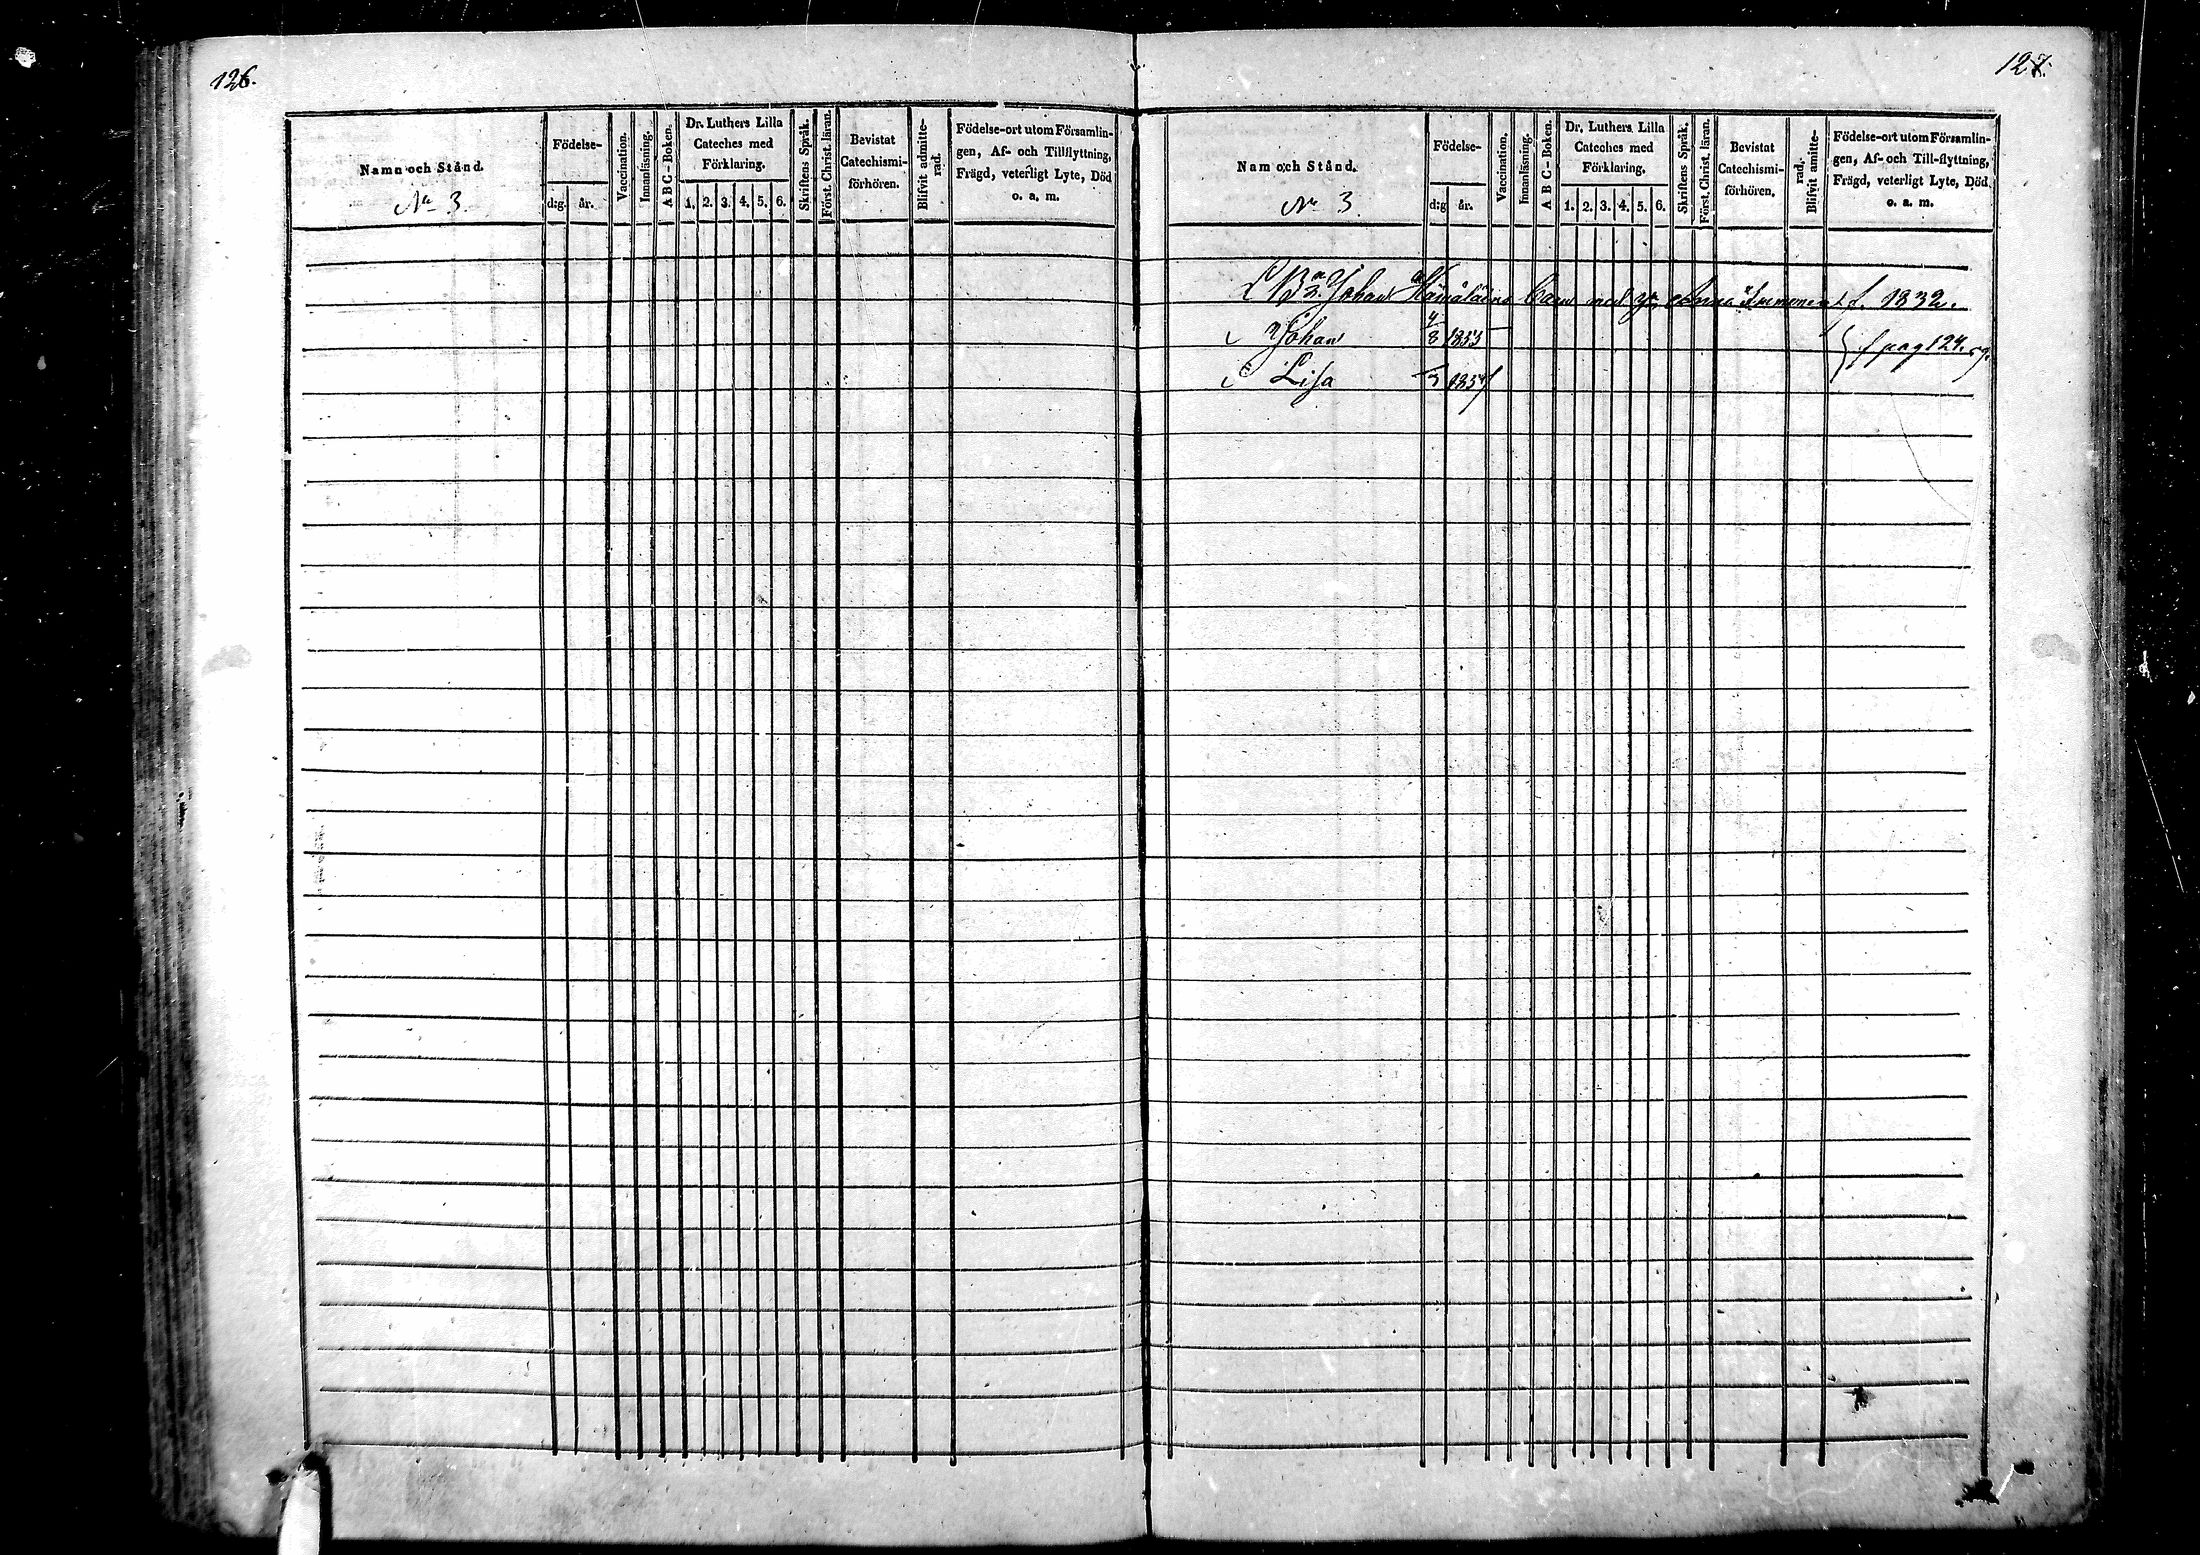 126.
Namn och Stånd.
No 3.
Födelse-
d:g. år.
Vaccination.
Innanläsning.
A B C - Boken.
Dr. Luthers Lilla
Cateches med
Förklaring.
1. 2. 3. 4. 5. 6.
Skriftens Språk.
Först. Christ. läran.
Bevistat
Catechismi-
förhören.
Blifvit admitte-
rad.
Födelse-ort utom Församlin-
gen, Af- och Tillflyttning,
Frägd, veterligt Lyte, Död
o. a. m.
127.
Namn och Stånd.
No 3
Födelse-
d:g år.
Vaccination.
Innanläsning.
A B C - Boken.
Dr. Luthers Lilla
Cateches med
Förklaring.
1. 2. 3. 4. 5. 6.
Skriftens Språk.
Först. Christ. läran.
Bevistat
Catechismi-
förhören.
rad.
Blifvit amitte-
Födelse-ort utom Församlin-
gen, Af- och Till-flyttning,
Frägd, veterligt Lyte, Död.
o. a. m.
Johan Hämäläins barn med Anna Immonen f. 1832.
Johan 4/8 1853
f pag 124.
Lisa 1854